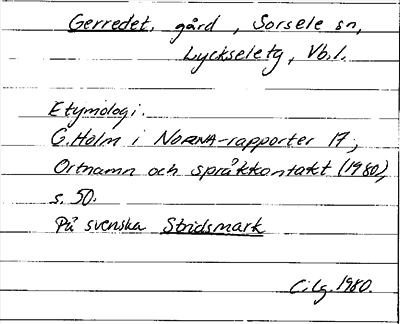 Gerredet, gård, Sorsele sn,
Lyckseletg, Vb.l.
Etymologi.
G. Holm i NORNA-rapporter 17,
Ortnamn och språkkontakt (1980),
s. 50.
På svenska Stridsmark
C.Lg. 1980.